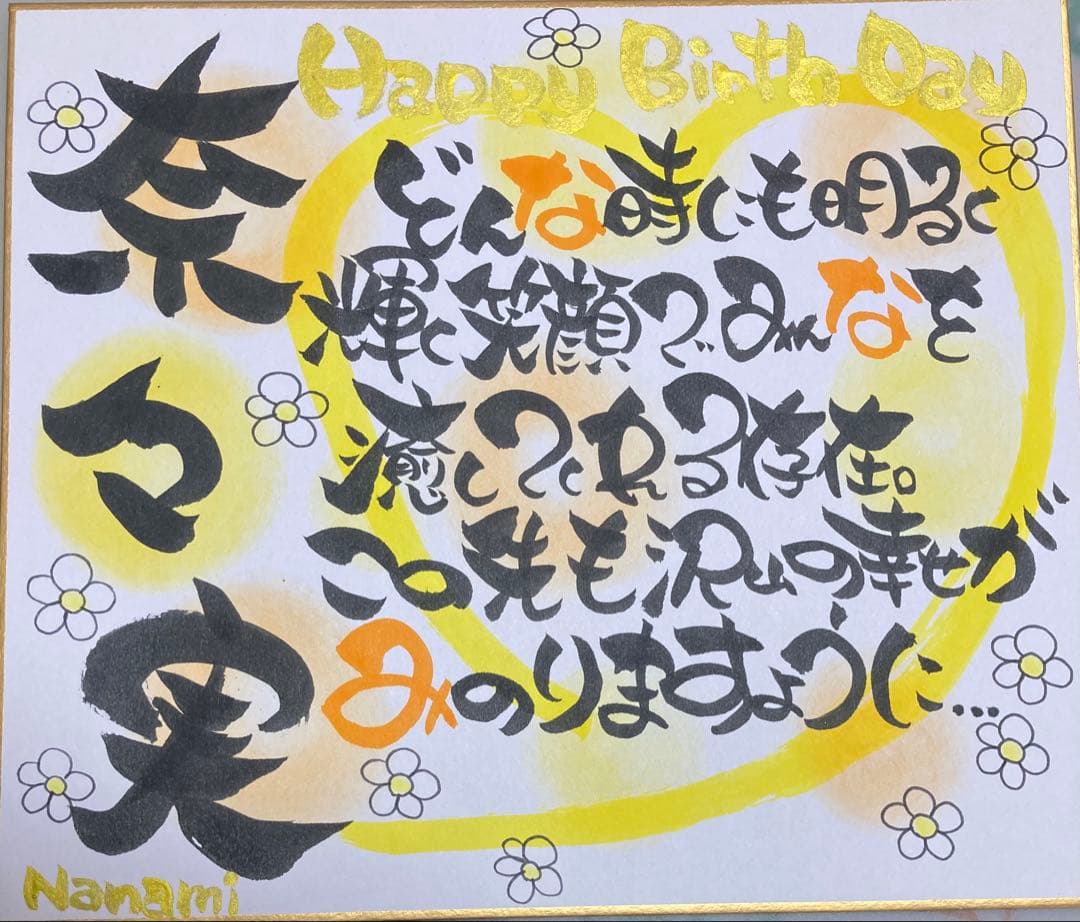 Happy Birth Day
奈々実
どんな時にも明るく
輝く笑顔でみんなを
癒してくれる存在。
この先も沢山の幸せが
みのりますように…
Nanami